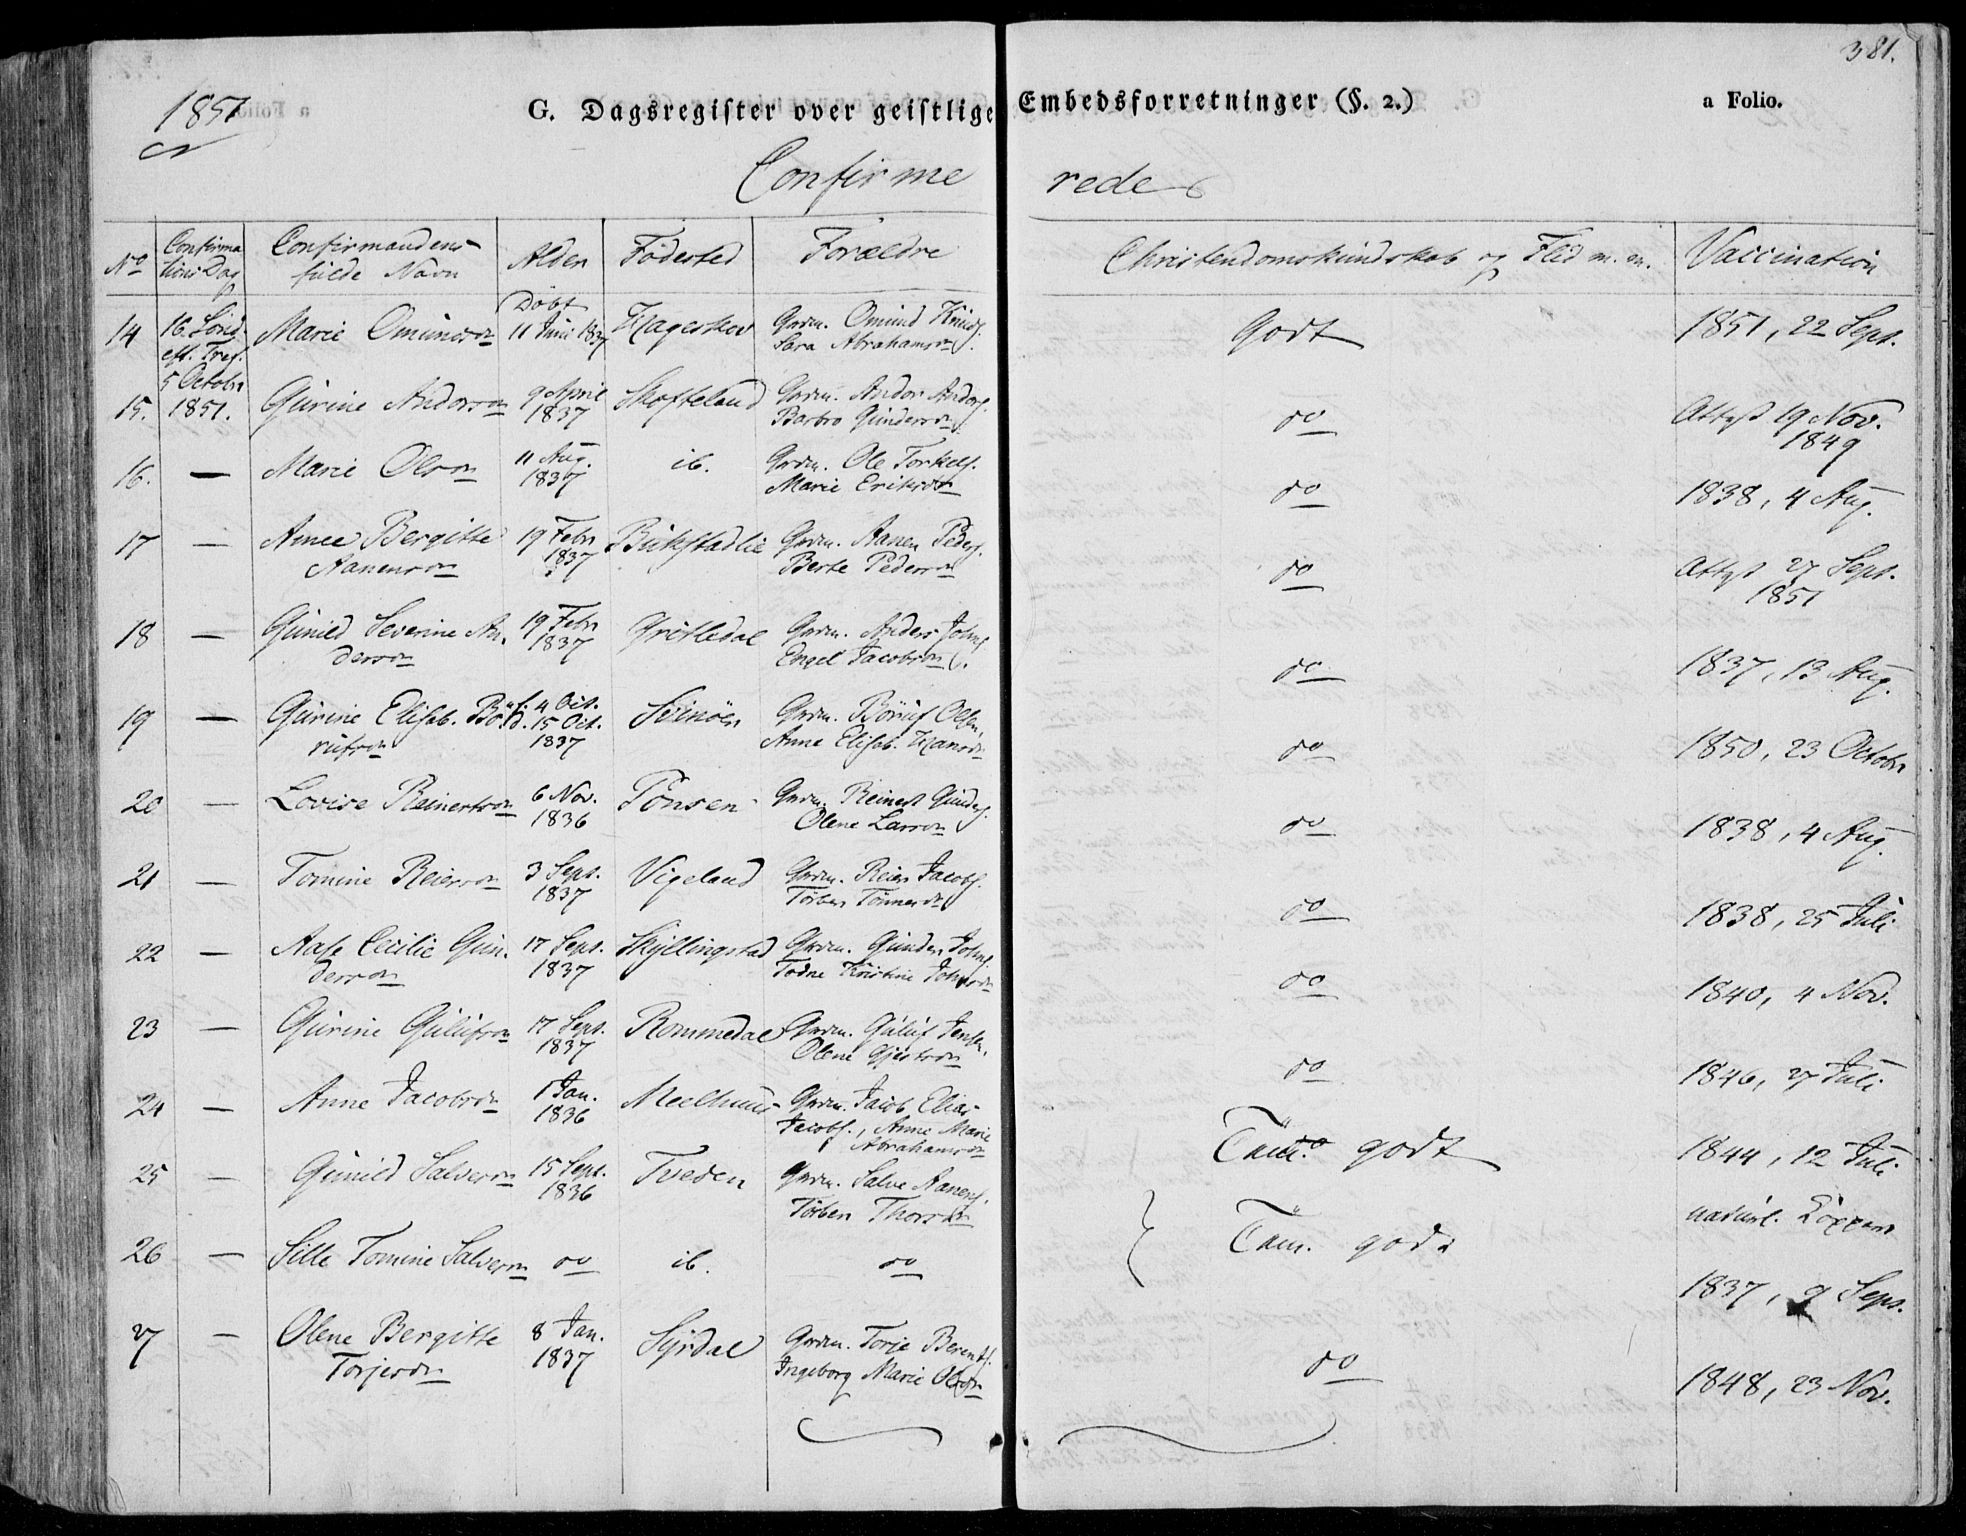 381.
1851
G. Dagsregister over geistlige Embedsforretninger (§. 2.)
a Folio.
Confirmerede
No
Confirmations Dag
Confirmandens fulde Navn
Alder
Fødested
Forældre
Christendomskundskab og Flid m. m.
Vaccination
14 16. Sönd. eft. Tref. 5 Octobr 1851. Marie Omunsdn Döbt 11 Juni 1837 Grdm. Omund Knuds. Sara Abrahamsdn Godt 1851, 22 Sept.
15. Gurine Andersdn 9 April 1837 Skofteland Grdm. Anders Anders. Barbro Gundersdn do Attest 19 Nov. 1849
16. — Marie Olsdn 11 Aug. 1837 ib. Grdm. Ole Torkels. Marie Eriksdn do 1838, 4 Aug.
17 — Anne Bergitte Aanensdn 19 Febr 1837 Grdm. Aanen Peders. Berte Pedersdn do Attest 27 Sept. 1851
18 — Gunild Severine Andersdn 19 Febr 1837 Grdm. Anders Johns. Engel Jacobsdn do 1837, 13 Aug.
19 — Gurine Elisab. Börufsdn f. 4 Oct. d. 15 Oct. 1837 Svinöer Grdm. Böruf Olsen, Anne Elisab. Hansdn do 1850, 23 Octobr
20 — Lovise Reinertsdn 6 Nov. 1836 Grdm. Reinert Gunders. Olene Larsdn do 1838, 4 Aug.
21 — Tomine Reiersdn 3 Sept. 1837 Vigeland Grdm. Reier Jacobs. Torbor Tönnesdn do 1838, 25 Juli
22 — Aase Cecilie Gundersdn 17 Sept. 1837 Skjllingstad Grdm. Gunder Johns. Todne Kristine Johnsdn do 1840, 4 Nov.
23 — Gurine Gulufsdn 17 Sept. 1837 Rommedal Grdm. Guluf Jensen, Olene do 1846, 27 Juli
24 — Anne Jacobsdn 1 Jan. 1836 Meelhuus Grdm. Jacob Elias Jacobs., Anne Marie Abrahamsdn Tem. godt 1844, 12 Juli
25 — Gunild Salvesdn 15 Sept. 1836 Tveden Grdm. Salve Aanens. Torbor Thorsdn Tem. godt naturl. Kopper
26 — Sille Tomine Salvesdn do ib. do 1837, 9 Sept.
27 — Olene Bergitte Torjesdn 8 Jan. 1837 Syrdal Grdm. Torje Berents. Ingeborg Marie Olsdn do 1848, 23 Nov.